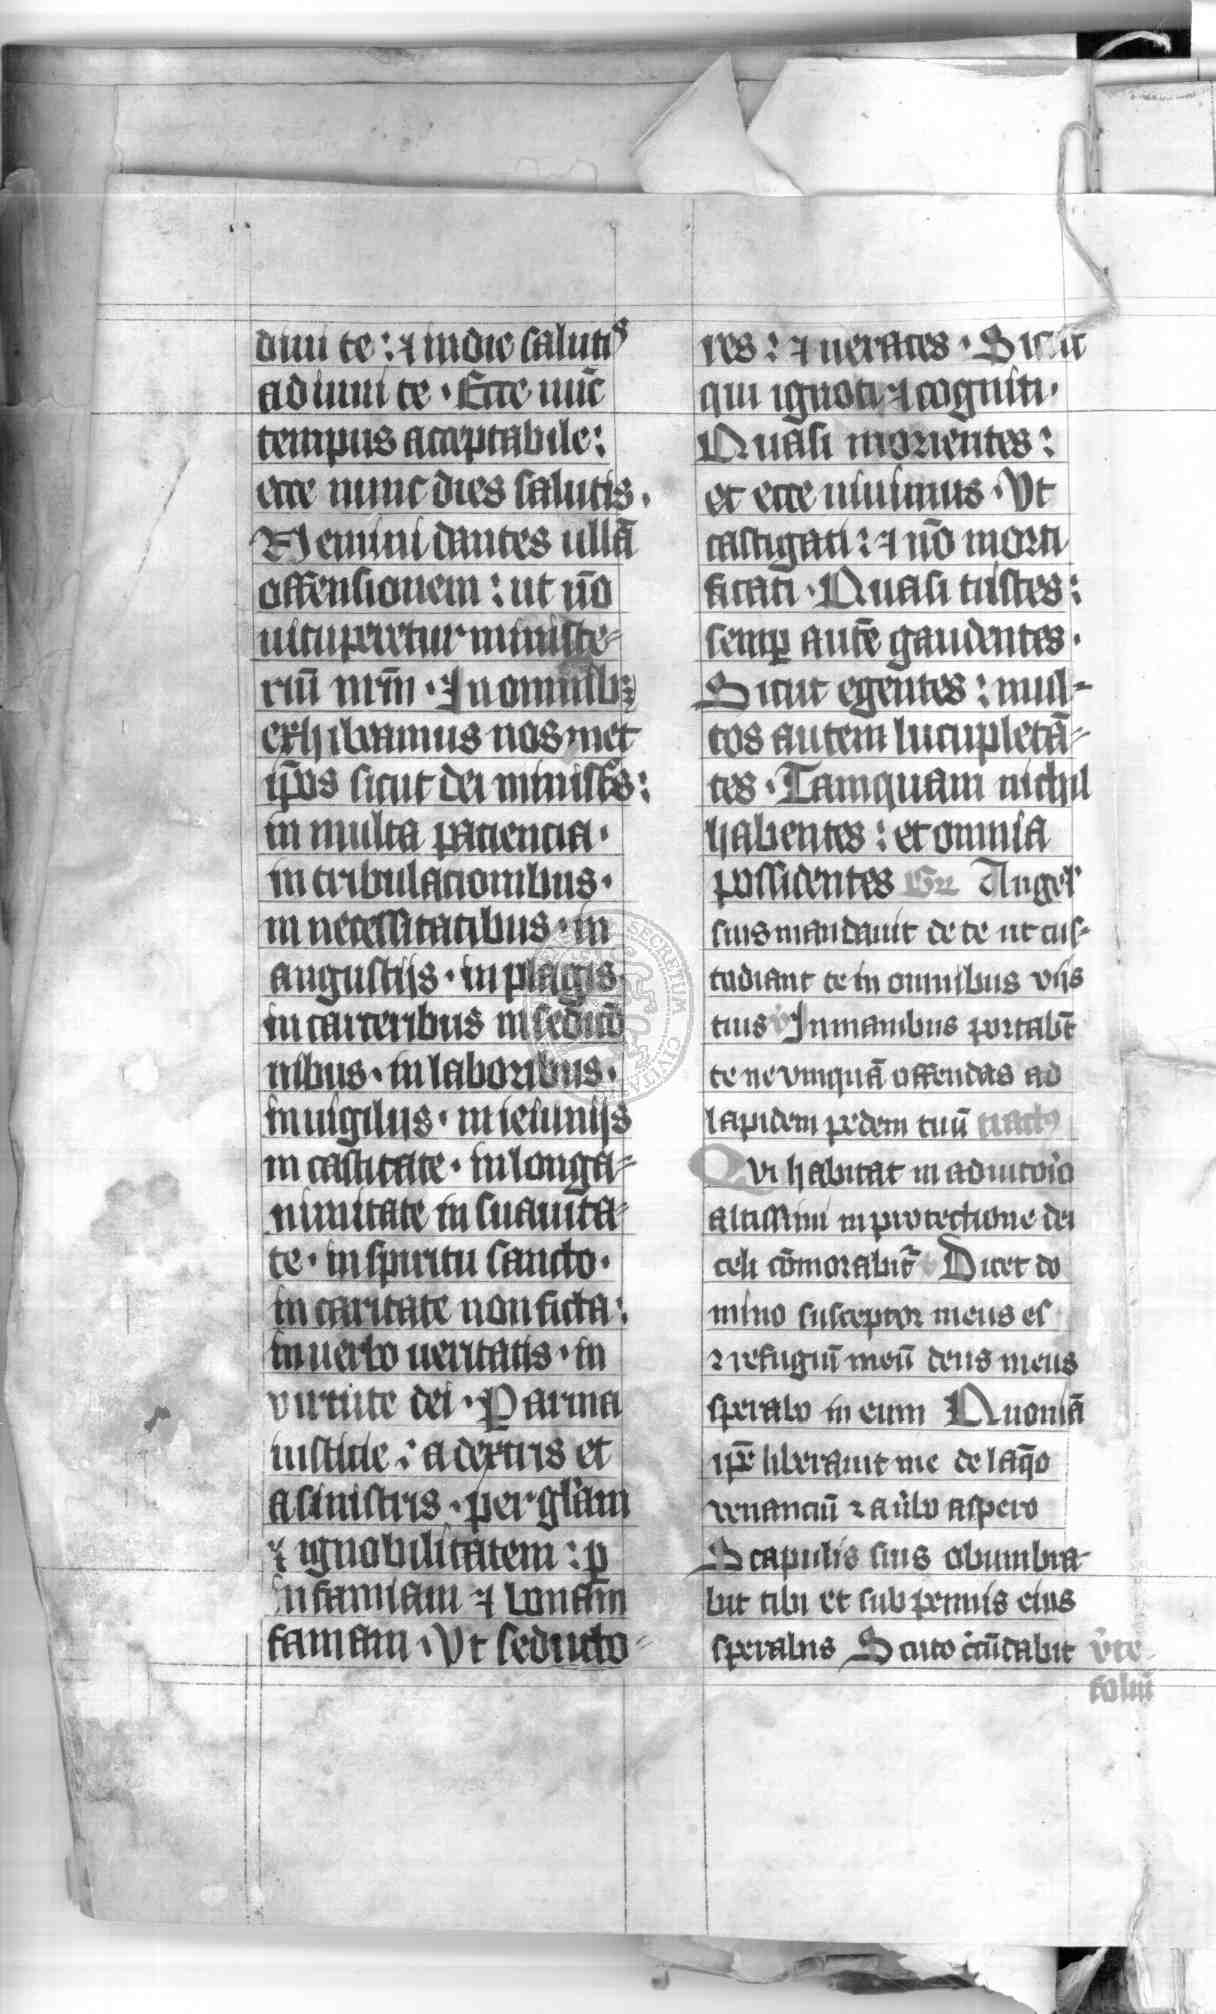 diuui te : ⁊ in die saluti⁹
adiuui te · Ecce nūc
tempus acceptabile :
ecce nunc dies salutis ·
Nemini dantes ullā
offensionem : ut nō
uituperetur ministe⸗
riū nrm̄ · In omnibꝫ
exhibeamus nosmet
ip̄os sicut dei minist̄os :
in multa paciencia ·
in tribulacionibus ·
in necessitatibus · in
angustijs · in plagis ·
in carceribus in sedicō
nibus · in laboribus ·
in uigilijs · in ieiunijs
in castitate · in longa⸗
nimitate in suauita⸗
te · in spiritu sancto ·
in caritate non ficta :
in uerbo ueritatis · in
virtute dei · Per arma
iusticie : a dextris et
a sinistris · per glām
⁊ ignobilitatem : ꝑ
infamiam ⁊ bonam
famam · Vt seducto⸗
res : ⁊ ueraces · Sicut
qui ignoti ⁊ cogniti ·
Quasi morientes :
et ecce uiuimus · Vt
castigati : ⁊ nō morti
ficati · Quasi tristes :
semꝑ autē gaudentes ·
Sicut egentes : mul⸗
tos autem lucupletā⸗
tes · Tamquam nichil
habentes : et omnia
possidentes Gr Angel
suis mandauit de te ut cus⸗
todiant te in omnibus viis
tuis v̄ In manibus portabūt
te ne vmquā offendas ad
lapidem pedem tuū tractꝯ
Qvi habitat in adiutorio
altissimi in protectione dei
celi cōmorabit᷑ v̄ Dicet do
mino susceptor meus es
⁊ refugiū meū deus meus
sperabo in eum Quoniā
ip̄e liberauit me de laq̄o
venanciū ⁊ a v̄bo aspero
Scapulis suis obumbra⸗
bit tibi et sub pennis eius
sperabis Scuto c̄cūdabit v̄te